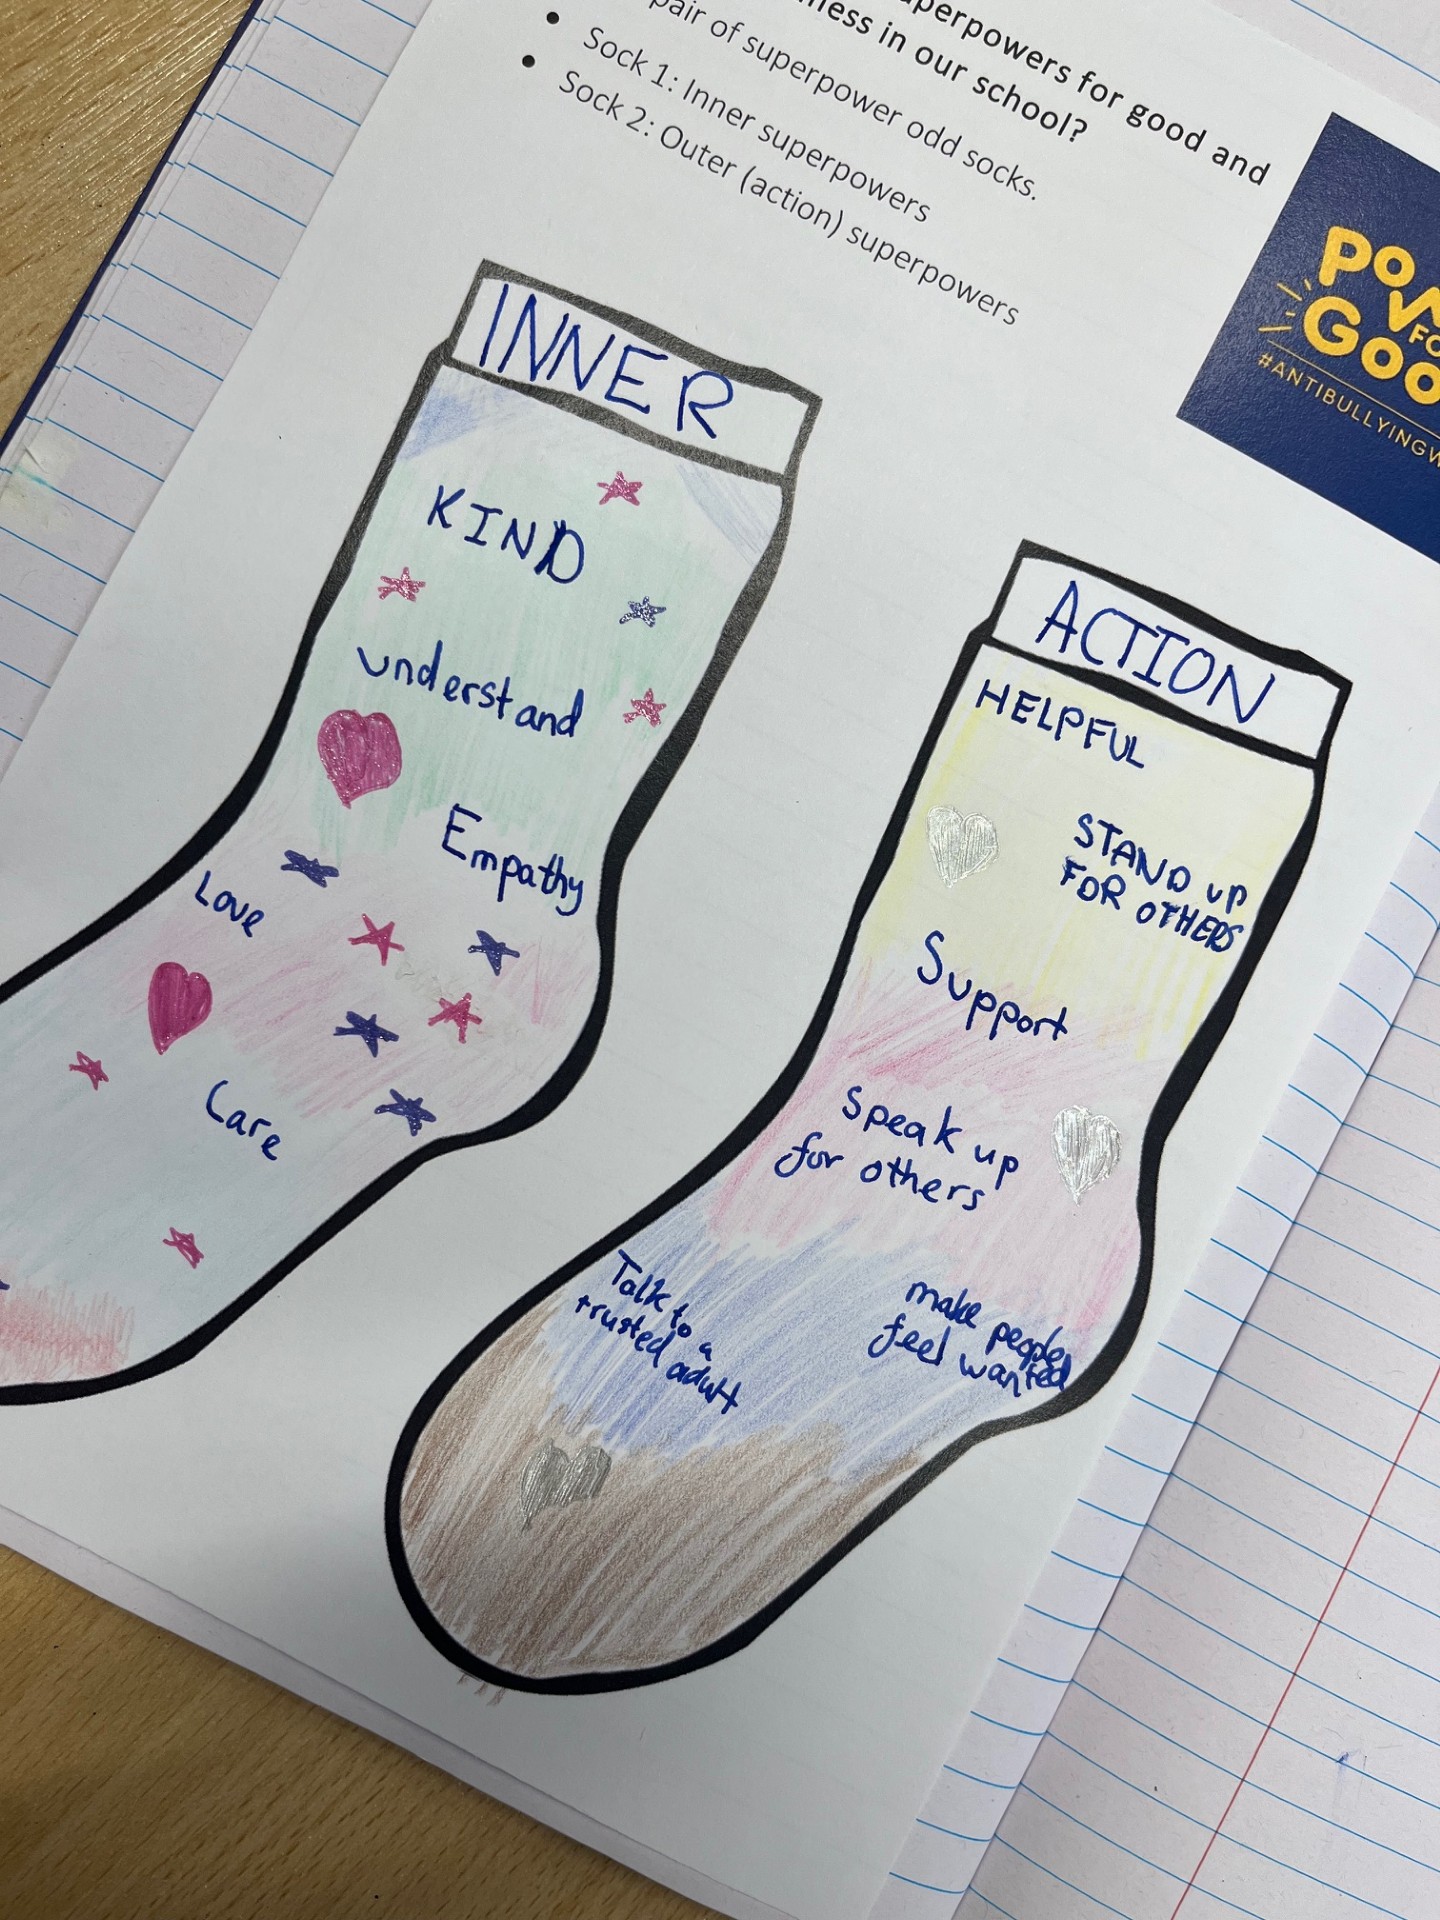 superpowers for good and
in our school?
pair of superpower odd socks.
• Sock 1: Inner superpowers
• Sock 2: Outer (action) superpowers
GOO
#ANTIBULLYINGW
INNER
KIND
understand
Empathy
Love
Care
ACTION
HELPFUL
STAND UP
FOR OTHERS
Support
Speak up
for others
Talk to a
trusted adult
make people
feel wanted